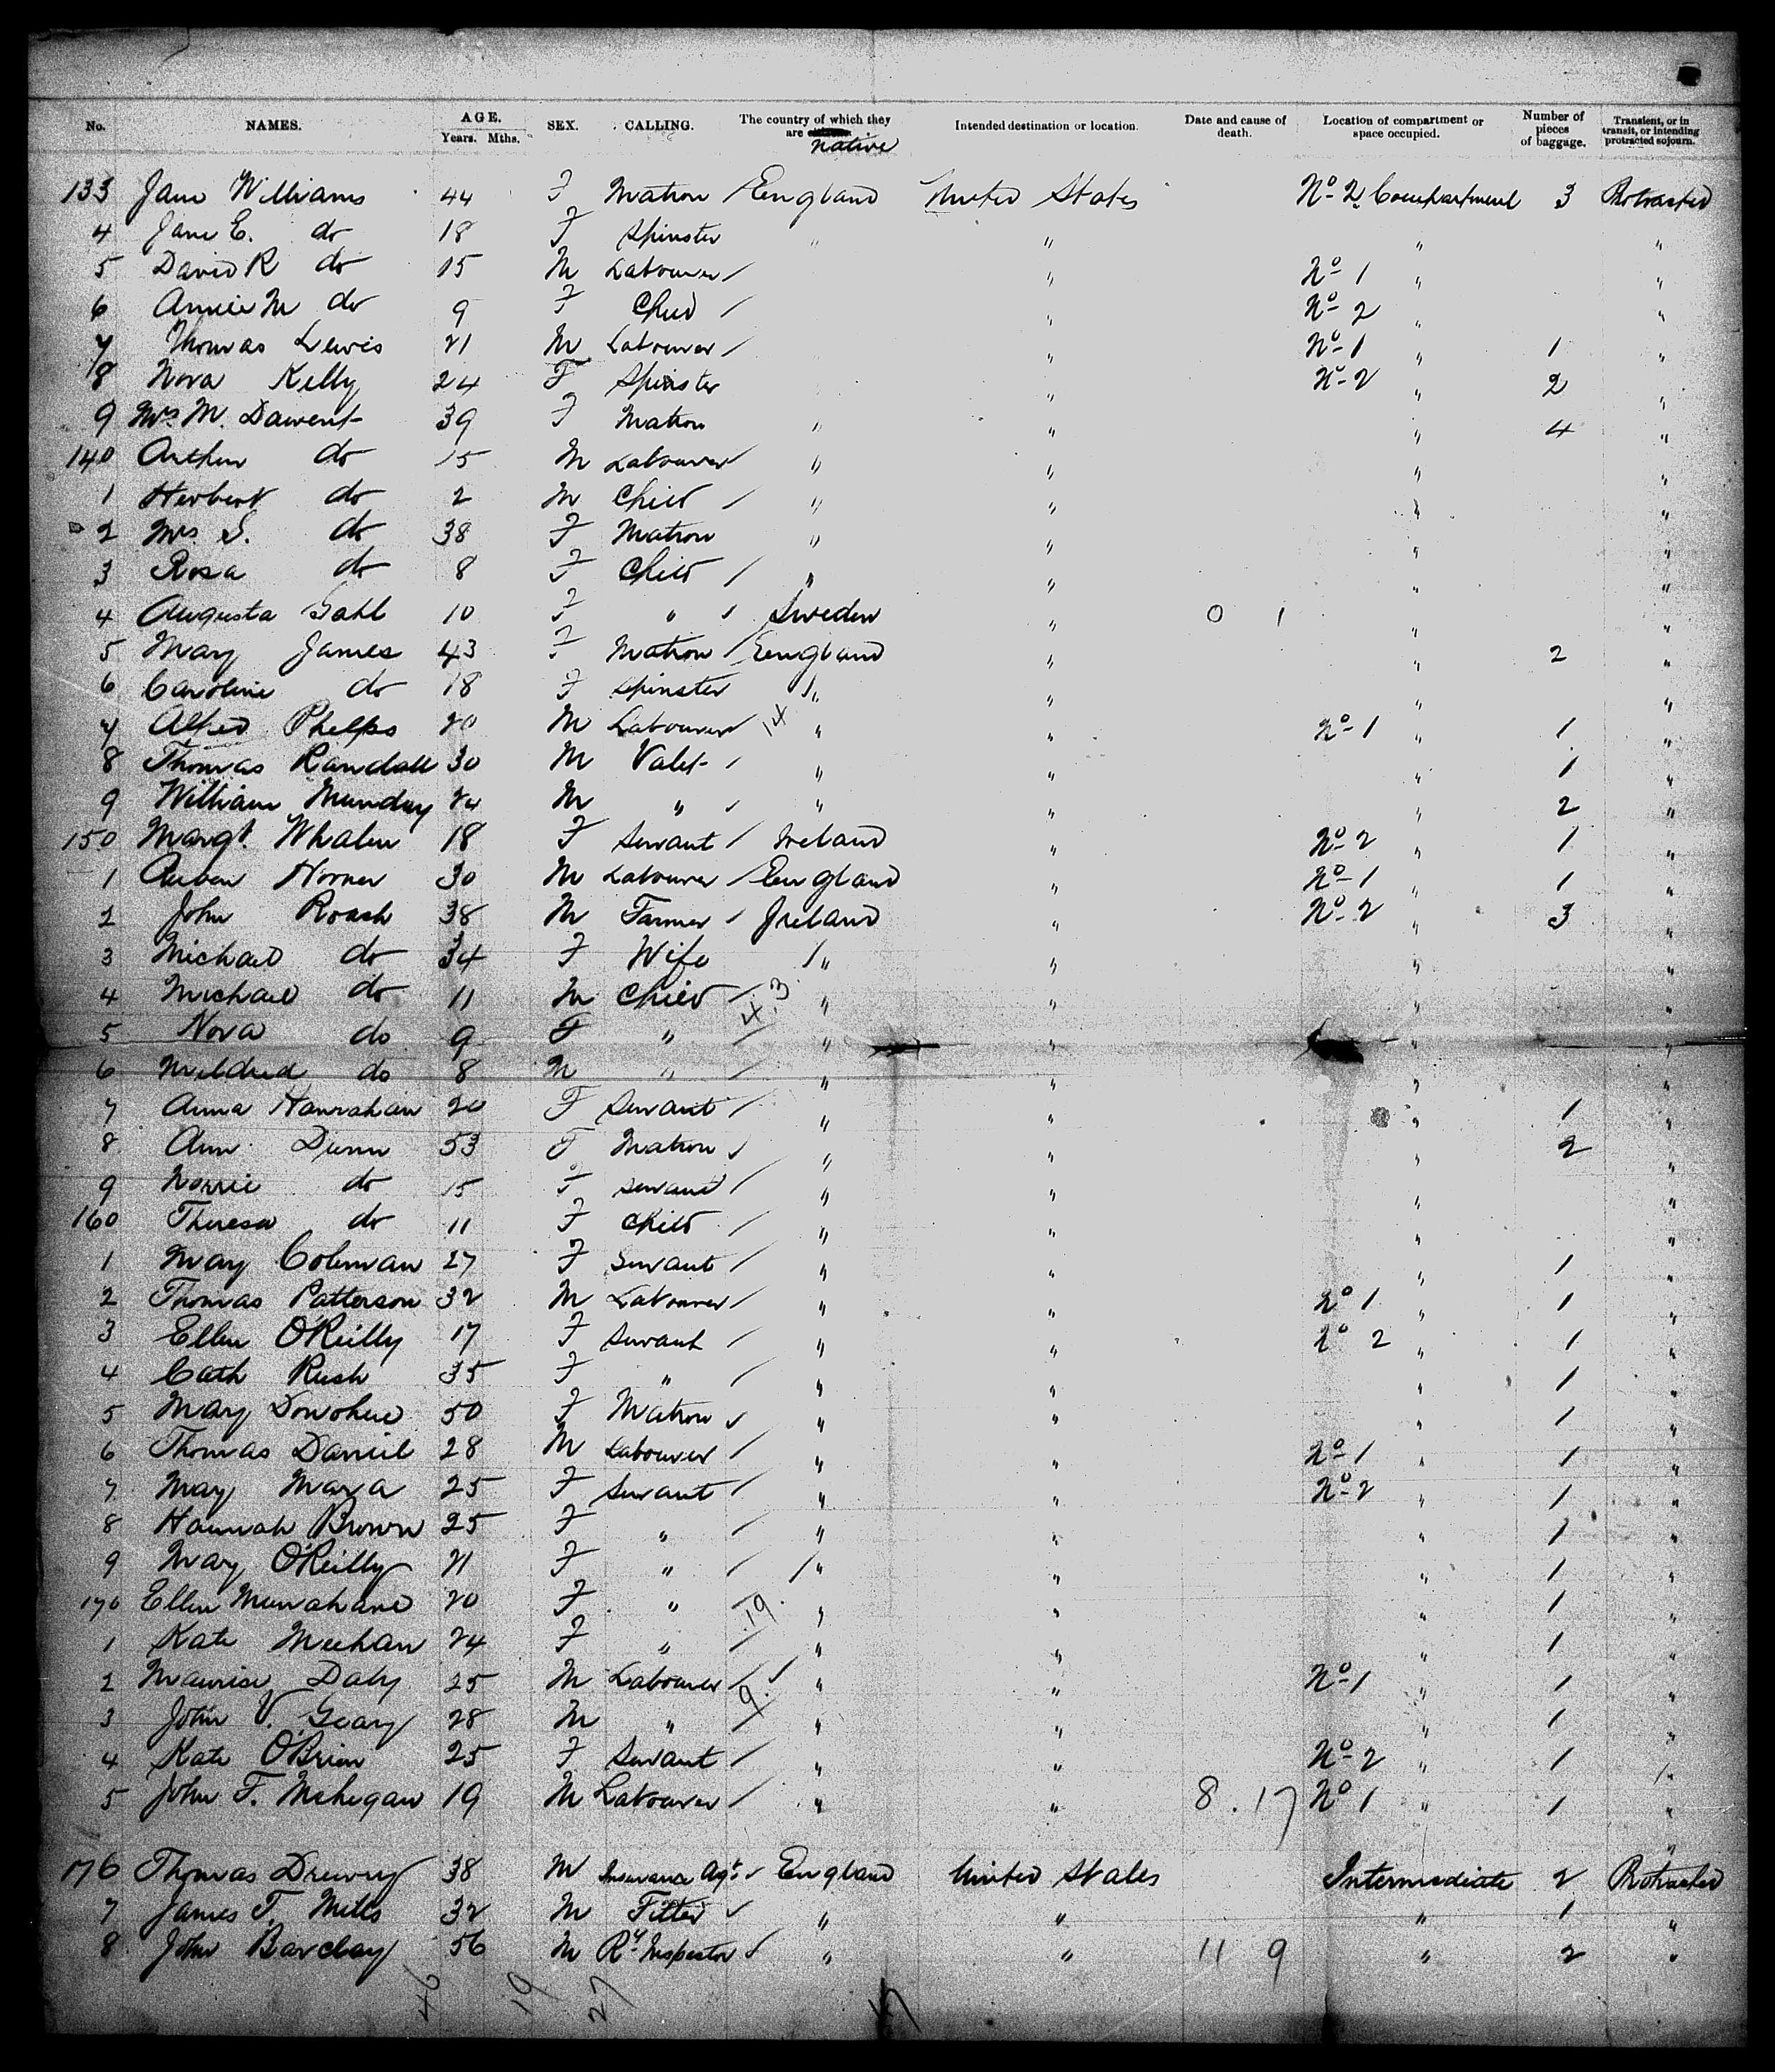 No. NAMES. AGE. Years. Mths. SEX. CALLING. The country of which they are native Intended destination or location. Date and cause of death. Location of compartment or space occupied. Number of pieces of baggage. Transient, or in transit, or intending protracted sojourn.
133 Jane Williams 44 F Matron / England United States No 2 Compartment 3 Protracted
4 Jane E. do 18 F Spinster " " " "
5 David R do 15 M Labourer / " No 1 " "
6 Annie M do 9 F Child / " No 2 " "
7 Thomas Lewis 21 M Labourer / " No 1 " 1 "
8 Nora Kelly 24 F Spinster " No 2 " 2 "
9 Mrs M. Dawent 39 F Matron " " " 4 "
140 Arthur do 15 M Labourer / " " " "
1 Herbert do 2 M Child / " " " "
2 Mrs S. do 38 F Matron " " " "
3 Rosa do 8 F Child / " " " "
4 Augusta Dahl 10 F " / Sweden " 0 1 " "
5 Mary James 43 F Matron / England " " 2 "
6 Caroline do 18 F Spinster " " " "
7 Alfred Phelps 20 M Labourer / 14 " " No 1 " 1 "
8 Thomas Randall 30 M Valet / " " " 1 "
9 William Munday 24 M " / " " " 2 "
150 Margt. Whalen 18 F Servant / Ireland " No 2 " 1 "
1 Reuben Horner 30 M Labourer / England " No 1 " 1 "
2 John Roach 38 M Farmer / Ireland " No 2 " 3 "
3 Michael do 34 F Wife " " " "
4 Michael do 11 M Child / 4.3 " " " "
5 Nora do 9 F " / " " " "
6 Mildred do 8 M " / " " " "
7 Anna Hanrahan 20 F Servant / " " " 1 "
8 Ann Dunn 53 F Matron / " " " 2 "
9 Norrie do 15 F Servant / " " " "
160 Theresa do 11 F Child / " " " "
1 Mary Coleman 27 F Servant / " " " 1 "
2 Thomas Patterson 32 M Labourer / " " No 1 " 1 "
3 Ellen O'Reilly 17 F Servant / " " No 2 " 1 "
4 Cath Rush 35 F " / " " " 1 "
5 Mary Donohue 50 F Matron / " " " 1 "
6 Thomas Daniel 28 M Labourer / " " No 1 " 1 "
7 Mary Mara 25 F Servant / " " No 2 " 1 "
8 Hannah Brown 25 F " / " " " 1 "
9 Mary O'Reilly 21 F " / " " " 1 "
170 Ellen 20 F " 19 " " " 1 "
1 Kate Meehan 24 F " / " " " 1 "
2 Maurice Daly 25 M Labourer / " " No 1 " 1 "
3 John V. Geary 28 M " 9 " " " 1 "
4 Kate O'Brien 25 F Servant / " " No 2 " 1 "
5 John F. Mehegan 19 M Labourer / " " 8. 17 No 1 " 1 "
176 Thomas Drewry 38 M Insurance Agt. / England United States Intermediate 2 Protracted
7 James T. Mills 32 M Fitter / " " " 1 "
8 John Barclay 56 M Ry Inspector / " " 11 9 " 2 "
46 19 27